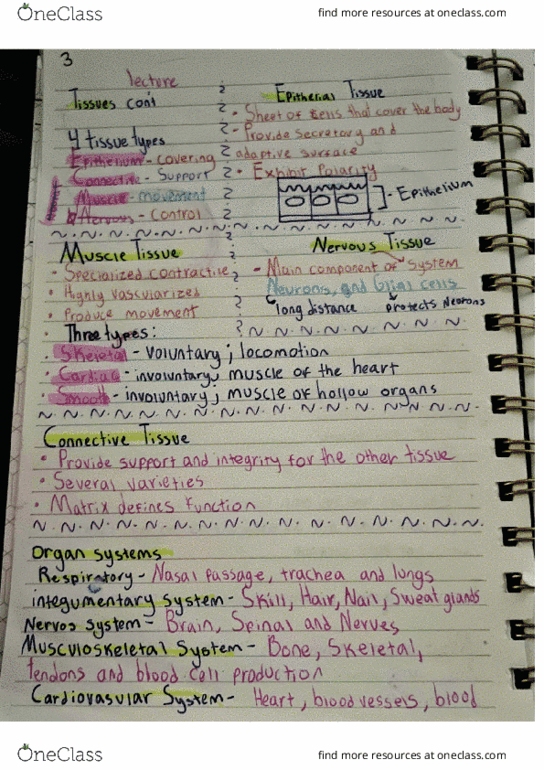 OneClass
find more resources at oneclass.com
3
lecture
Tissues cont
4 tissue types
Epithenium - covering
Connective - Support
Muscle - movement
Nervous - Control
Epithelial Tissue
• Sheet of cells that cover the body
• Provide secretory and
adaptive surface
• Exhibit Polarity
- Epithelium
Muscle Tissue
• Specialized contractile
• Highly vascularized
• Produce movement
• Three types:
• Skeletal - voluntary; locomotion
• Cardiac - involuntary, muscle of the heart
• Smooth - involuntary; muscle of hollow organs
Nervous Tissue
• Main component of system
Neurons, and Glial cells
long distance
protects Neurons
Connective Tissue
• Provide support and integrity for the other tissue
• Several varieties
• Matrix defines function
Organ systems
Respiratory - Nasal passage, trachea and lungs
integumentary system - Skill, Hair, Nail, Sweat glands
Nervos system - Brain, Seinal and Nerves
Musculoskeletal System - Bone, Skeletal,
tendons and blood cell production
Cardiovasular System - Heart, blood vessels, blood
OneClass
find more resources at oneclass.com